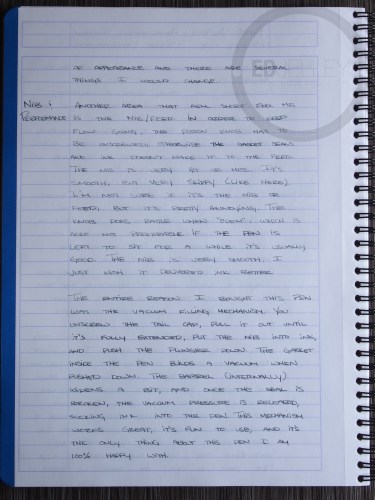 OF APPEARANCE AND THERE ARE SEVERAL
THINGS I WOULD CHANGE.
NIB &
PERFORMANCE
ANOTHER AREA THAT FELL SHORT FOR ME
IS THE NIB/FEED. IN ORDER TO KEEP
FLOW GOING, THE PISTON KNOB HAS TO
BE UNSCREWED OTHERWISE THE GASKET SEALS
AND WE DOESN'T MAKE IT TO THE FEED.
THE NIB IS VERY HIT OR MISS. IT'S
SMOOTH, BUT VERY SKIPPY (LIKE HERE).
I'M NOT SURE IF IT'S THE NIB OR
FEED, BUT IT'S PRETTY ANNOYING. THE
KNOB DOES RATTLE WHEN "OPEN", WHICH IS
ALSO NOT PREFERABLE. IF THE PEN IS
LEFT TO SIT FOR A WHILE IT'S USUALLY
GOOD. THE NIB IS VERY SMOOTH, I
JUST WISH IT DELIVERED INK BETTER.
THE ENTIRE REASON I BOUGHT THIS PEN
WAS THE VACUUM FILLING MECHANISM. YOU
UNSCREW THE TAIL CAP, PULL IT OUT UNTIL
IT'S FULLY EXTENDED, PUT THE NIB INTO INK,
AND PUSH THE PLUNGER DOWN. THE GASKET
INSIDE THE PEN BUILDS A VACUUM WHEN
PUSHED DOWN. THE BARREL (INTERNALLY)
WIDENS A BIT, AND ONCE THE SEAL IS
BROKEN, THE VACUUM PRESSURE IS RELEASED,
SUCKING INK INTO THE PEN. THIS MECHANISM
WORKS GREAT, IT'S FUN TO USE, AND IT'S
THE ONLY THING ABOUT THIS PEN I AM
100% HAPPY WITH.
ED